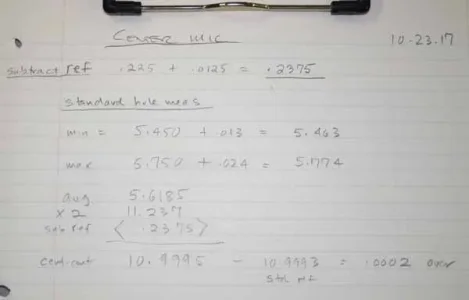 Center mic 10.23.17
subtract ref .225 + .0125 = .2375
standard hole meas
min = 5.450 + .013 = 5.463
max 5.750 + .024 = 5.774
avg 5.6185
x 2 11.237
sub ref < .2375 >
cent-cent 10.9995 - 10.9993 = .0002 over
std ref